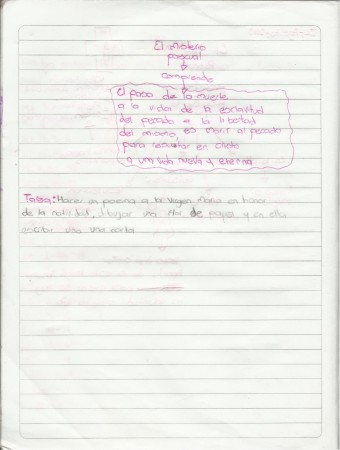 El misterio
pascual
comprende
El paso de la muerte
a la vida: de la esclavitud
del pecado a la libertad
del mismo, es morir al pecado
para resucitar en cristo
a una vida nueva y eterna
Tarea: Hacer un poema a la virgen maria en honor
de la natividad, dibujar una flor de papel y en ella
escribir una una carta